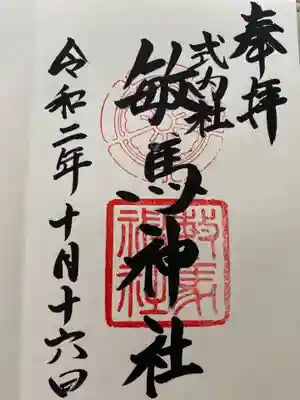 奉拝
式内社
敏馬神社
令和二年十月十六日
敏馬
神社